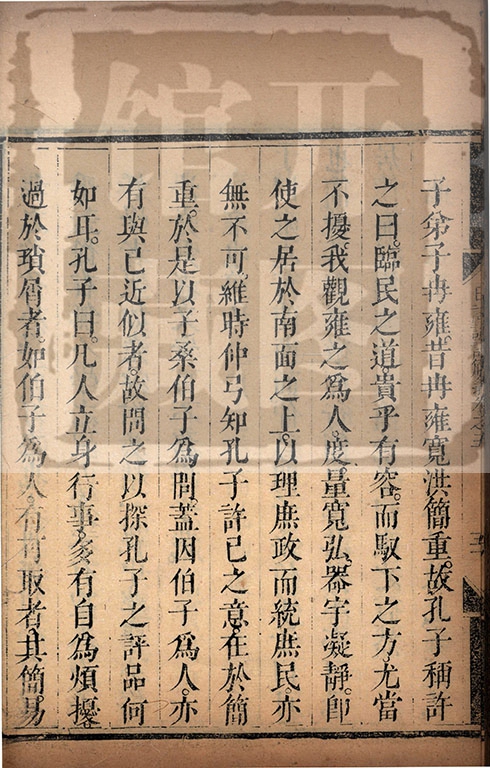 子弟子冉雍。昔冉雍寬洪簡重。故孔子稱許
之曰。臨民之道。貴乎有容。而馭下之方。尤當
不擾。我觀雍之為人。度量寬弘。器宇凝靜。即
使之居於南面之上。以理庶政而統庶民。亦
無不可。維時仲弓知孔子許己之意。在於簡
重。於是以子桑伯子為問。蓋因伯子為人。亦
有與己近似者。故問之以探孔子之評品何
如耳。孔子曰。凡人立身行事。多有自為煩擾
過於瑣屑者。如伯子為人。有可取者。其簡易